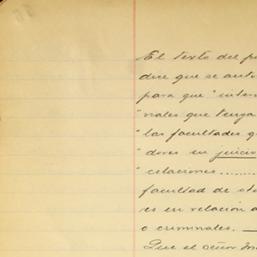 El texto del p
dice que se auto
para que "inten
"niales que tenga
"las facultades q
"dores en juicio
"citaciones..........
facultad de sto
es en relación a
o criminales. —
Que el señor In